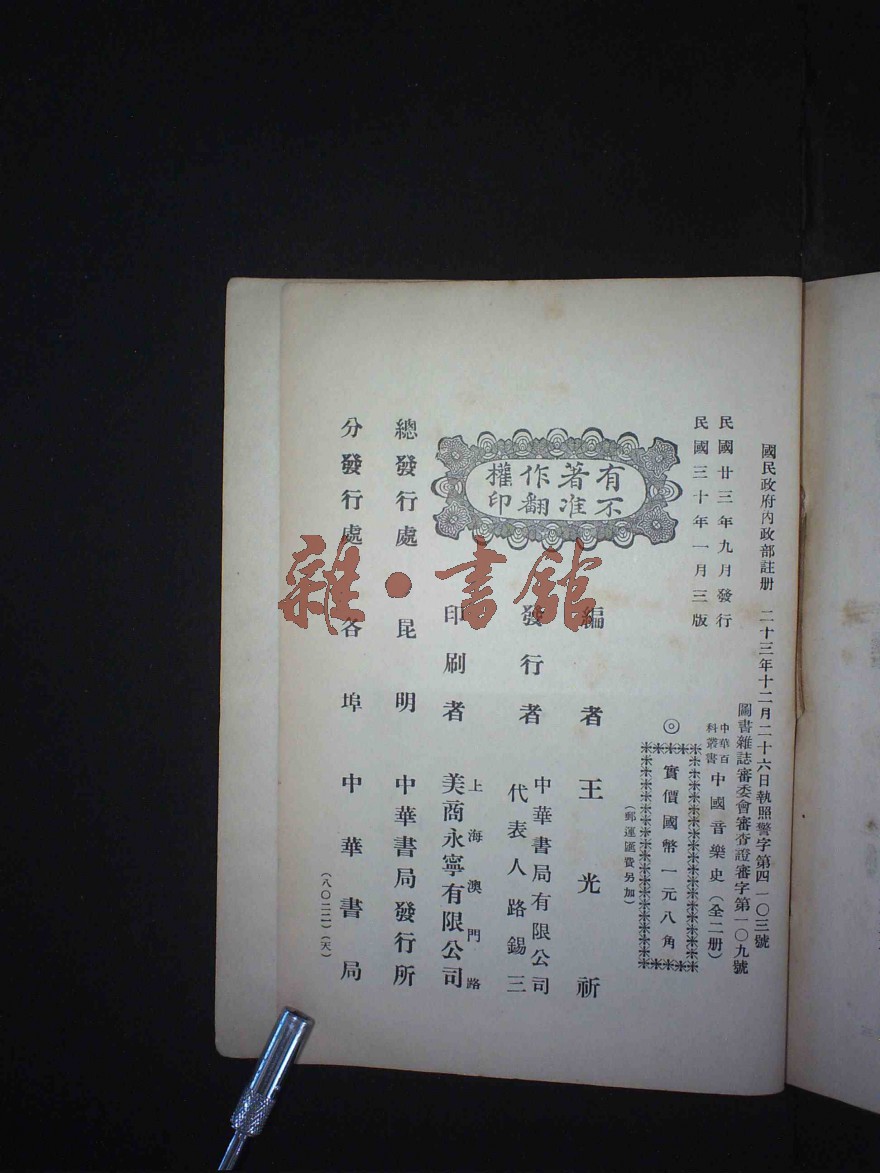 國民政府內政部註册 二十三年十二月二十六日執照警字第四一〇三號
圖書雜誌審委會審查證審字第一〇九號
民國廿三年九月發行
民國三十年一月三版
中華百科叢書 中國音樂史（全二册）
◎實價國幣一元八角
（郵運匯費另加）
有著作權
不准翻印
編者 王光祈
發行者 中華書局有限公司
代表人路錫三
印刷者 上海澳門路
美商永寧有限公司
總發行處 昆明 中華書局發行所
分發行處 各埠 中華書局
（八〇二二）（天）
雜·書館